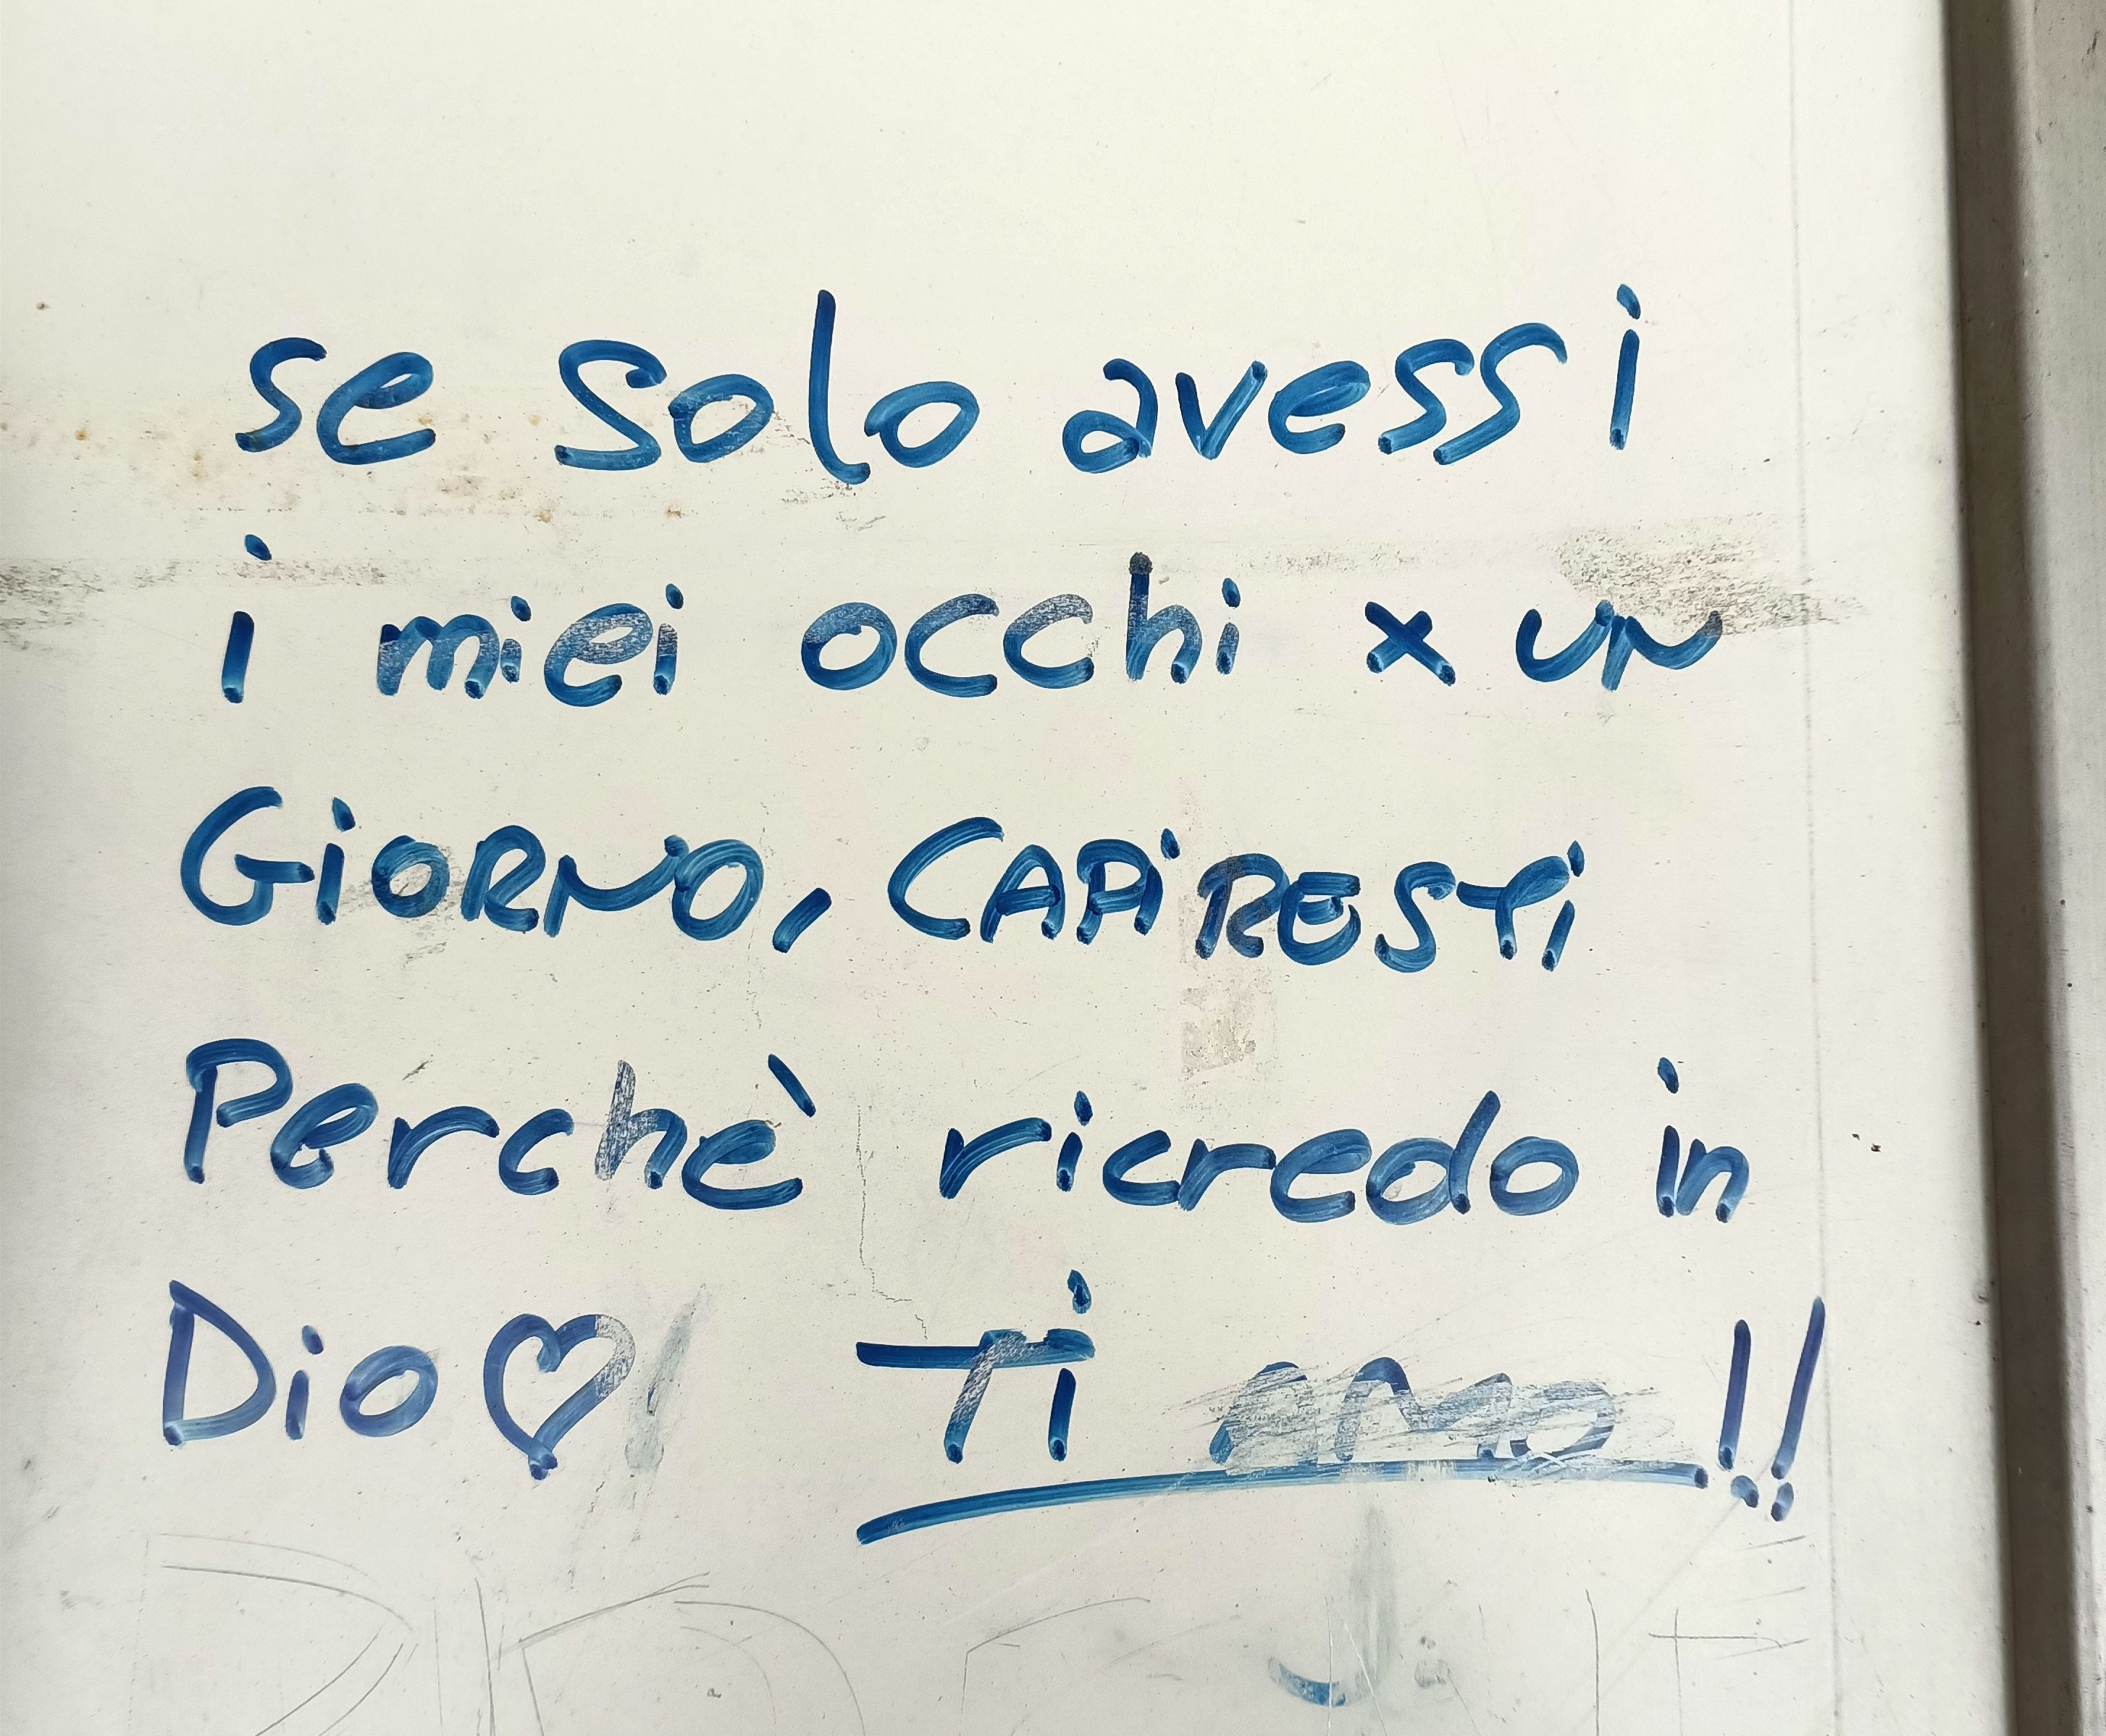 se solo avessi
i miei occhi x un
GiORNO, CAPiRESTi
Perchè ricredo in
Dio♡ Ti amo!!